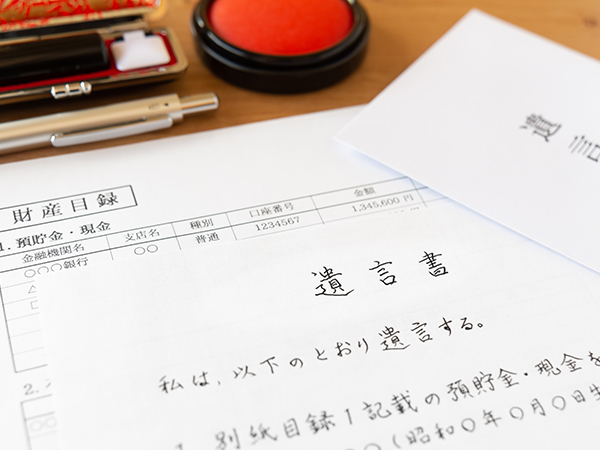 遺言
財産目録
1. 預貯金・現金
金融機関名 支店名 種別 口座番号 金額
○○○銀行 ○○ 普通 1234567 1,345,600円
2.
遺言書
私は、以下のとおり遺言する。
別紙目録1記載の預貯金・現金を
(昭和○年○月○日生